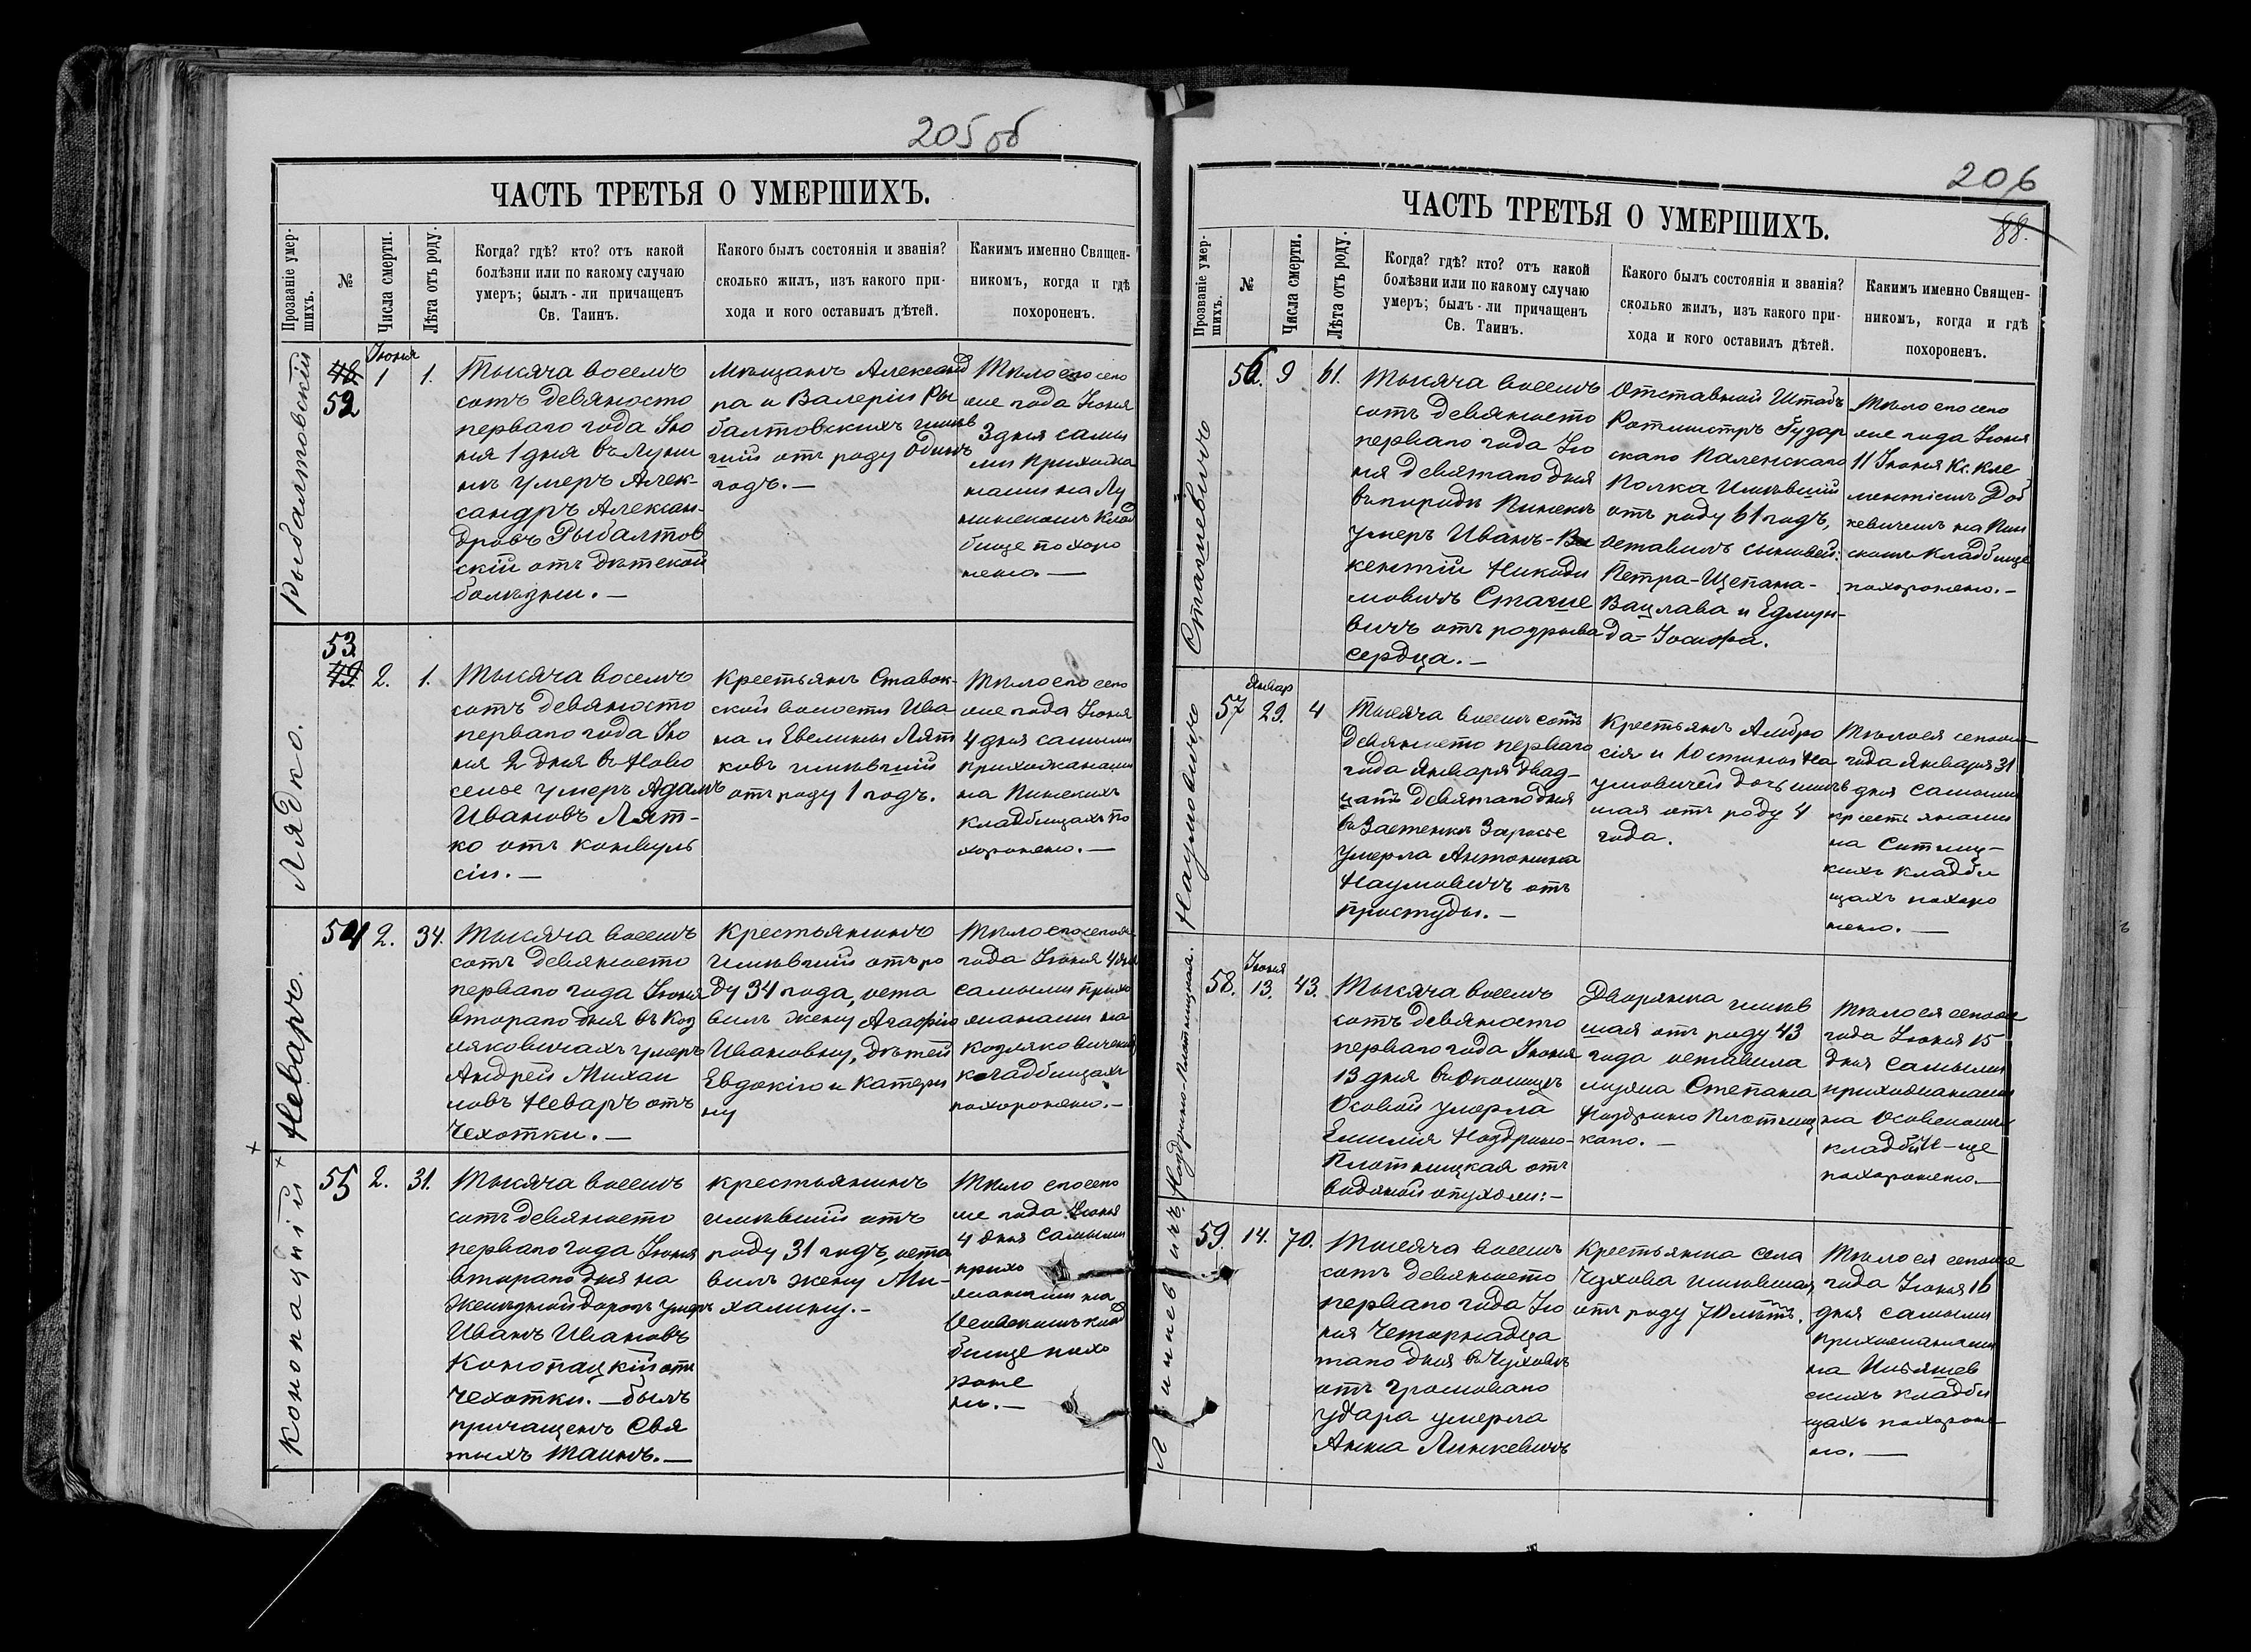 205 об
ЧАСТЬ ТРЕТЬЯ О УМЕРШИХЪ.
Прозваніе умер-
шихъ.
№
Числа смерти.
Лѣта отъ роду.
Когда? гдѣ? кто? отъ какой
болѣзни или по какому случаю
умеръ; былъ-ли причащенъ
Св. Таинъ.
Какого былъ состоянія и званія?
сколько жилъ, изъ какого при-
хода и кого оставилъ дѣтей.
Какимъ именно Священ-
никомъ, когда и гдѣ
похороненъ.
Рыбалтовскій
48.
52
Іюня
1
1.
Тысяча восемь
сотъ девяносто
перваго года Ію
ня 1 дня въ Луни
нѣ умеръ Алек-
сандръ Алексан-
дровъ Рыбалтов
скій отъ дѣтской
болѣзни. —
Мѣщанъ Александ
ра и Валеріи Ры
балтовскихъ имѣв
шій отъ роду одинъ
годъ. —
Тѣло его сего
же года Іюня
3 дня самы
ми прихожа
нами на Лу
нинскомъ клад
бище похоро
нено. —
Лядко.
53.
49.
2.
1.
Тысяча восемь
сотъ девяносто
перваго года Ію
ня 2 дня въ Ново
селье умеръ Адамъ
Ивановъ Лят-
ко отъ конвуль
сіи. —
Крестьянъ Ставок-
ской волости Ива-
на и Евелины Лят
ковъ имѣвшій
отъ роду 1 годъ.
Тѣло его сего
же года Іюня
4 дня самыми
прихожанами
на Пинскихъ
кладбищахъ по
хоронено. —
Неваръ.
54
2.
34.
Тысяча восемь
сотъ девяносто
перваго года Іюня
втораго дня въ Коз
ляковичахъ умеръ
Андрей Михаи
ловъ Неваръ отъ
чехотки. —
Крестьянинъ
имѣвшій отъ ро
ду 34 года, оста
вилъ жену Агафію
Ивановну, дѣтей
Евдокію и Катери
ну
Тѣло его сего же
года Іюня 4 дня
самыми прихо
жанами на
Козляковичских
кладбищахъ
похоронено. —
Конопацкій
55
2.
31.
Тысяча восемь
сотъ девяносто
перваго года Іюня
втораго дня на
Желѣзной дорогѣ умеръ
Иванъ Ивановъ
Конопацкій отъ
чехотки. — былъ
причащенъ Свя
тыхъ Таинъ. —
Крестьянинъ
имѣвшій отъ
роду 31 годъ, оста
вилъ жену Ми-
халину. —
Тѣло его сего
же года Іюня
4 дня самыми
прихо
жанами на
Особскомъ клад
бище похо
роне
но. —
206
88.
ЧАСТЬ ТРЕТЬЯ О УМЕРШИХЪ.
Прозваніе умер-
шихъ.
№
Числа смерти.
Лѣта отъ роду.
Когда? гдѣ? кто? отъ какой
болѣзни или по какому случаю
умеръ; былъ-ли причащенъ
Св. Таинъ.
Какого былъ состоянія и званія?
сколько жилъ, изъ какого при-
хода и кого оставилъ дѣтей.
Какимъ именно Священ-
никомъ, когда и гдѣ
похороненъ.
Сташевичъ
56.
9
61.
Тысяча восемь
сотъ девяносто
перваго года Ію
ня девятаго дня
въ городѣ Пинскѣ
умеръ Иванъ-Ви
кентій Никоди
мовичъ Сташе
вичъ отъ розрыва
сердца. —
Отставной Штабъ
Ротмистръ Гузар
скаго
Полка имѣвшій
отъ роду 61 годъ,
оставилъ сыновей:
Петра-Щепана-
Вацлава и Едмун-
да-Іосифа.
Тѣло его сего
же года Іюня
11 Іюня Кс. Кле
ментіемъ Доб
кевичемъ на Пин
скомъ кладбище
похоронено. —
Наумовичъ
57
Январ
29.
4
Тысяча восемь сотъ
девяносто перваго
года Января двад-
цать девятаго дня
въ Застенкѣ Заросье
умерла Антонина
Наумовичъ отъ
простуды. —
Крестьянъ Амбро
сія и Юстины На
умовичей дочь имѣв
шая отъ роду 4
года.
Тѣло ея сего же
года Января 31
дня самыми
крестьянами
на Ситниц-
кихъ кладби
щахъ похоро
нено. —
Ноздрино-Плотницкая.
58.
Іюня
13.
43.
Тысяча восемь
сотъ девяносто
перваго года Іюня
13 дня въ Околицѣ
Особой умерла
Емилія Ноздрино-
Плотницкая отъ
водяной опухоли: —
Дворянка имѣв
шая отъ роду 43
года оставила
мужа Степана
Ноздрино Плотниц
каго. —
Тѣло ея сего же
года Іюня 15
дня самыми
прихожанами
на Особскомъ
кладби-ще
похоронено. —
Линкевичъ.
59.
14.
70.
Тысяча восемь
сотъ девяносто
перваго года Ію
ня Четырнадца
таго дня въ Чуховѣ
отъ громоваго
удара умерла
Анна Линкевичъ
Крестьянка села
Чухова имѣвшая
отъ роду 70 лѣтъ.
Тѣло ея сего же
года Іюня 16
дня самыми
прихожанами
на
скихъ кладби
щахъ похороне
но. —